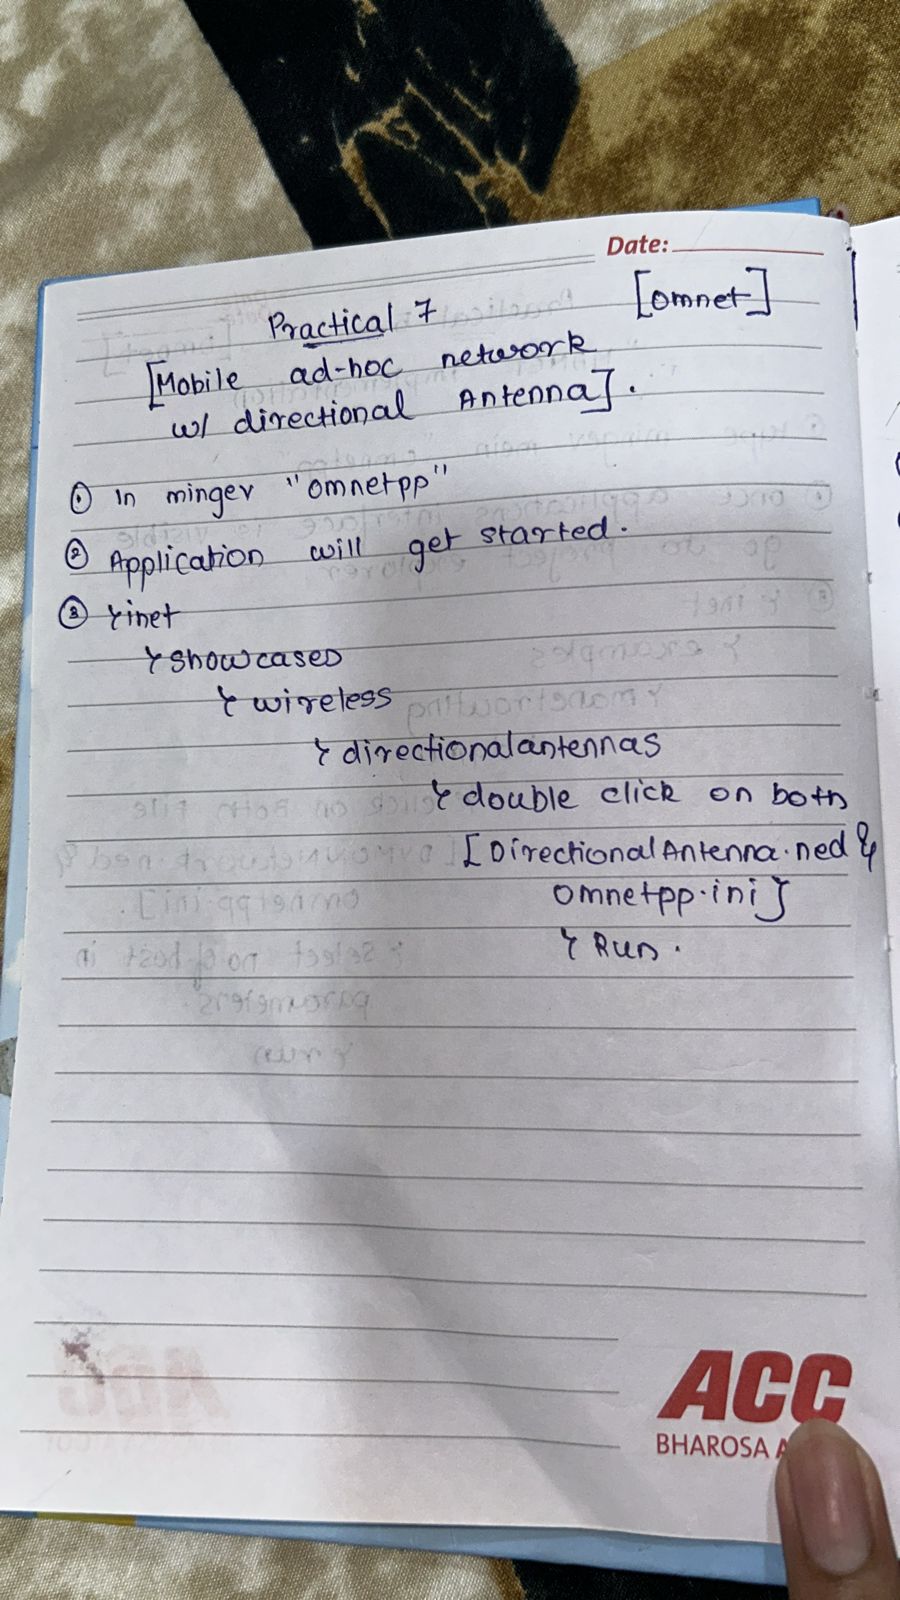 Date:
Practical 7 [omnet]
[Mobile ad-hoc network
w/ directional Antenna].
① In minger "omnetpp"
② Application will get started.
③ > inet
> showcases
> wireless
> directionalantennas
> double click on both
[DirectionalAntenna.ned &
omnetpp.ini]
> Run.
ACC
BHAROSA